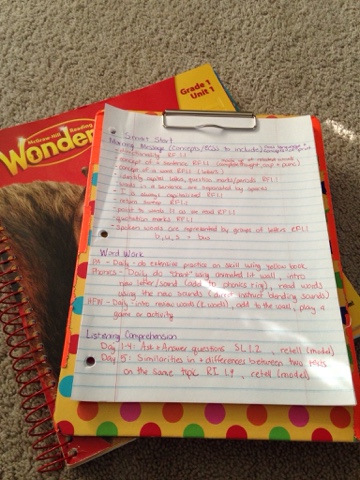 Grade 1
Unit 1
McGraw-Hill Reading
Wonder
Smart Start
Morning Message (Concepts/CCSS to include)
directionality RF.1.1
concept of a sentence RF.1.1
concept of a word RF.1.1 (labels)
identify capital letter, question marks/periods RF.1.1
words in a sentence are separated by spaces
I is always capitalized RF.1.1
return sweep RF.1.1
point to words as we read RF.1.1
quotation marks RF.1.1
Spoken words are represented by groups of letters RF.1.1
b, u, s = bus
Word Work
PA - Daily - do extensive practice on skill using yellow book
Phonics - Daily, do "chant" using animated lit wall, intro
new letter/sound (add to phonics ring), read words
using the new sounds (direct instruct blending sounds)
HFW - Daily - intro. new words (2 words), add to the wall, play a
game or activity
Listening Comprehension
Day 1-4: Ask + Answer questions SL.1.2, retell (model)
Day 5: Similarities in + differences between two texts
on the same topic RI.1.9, retell (model)